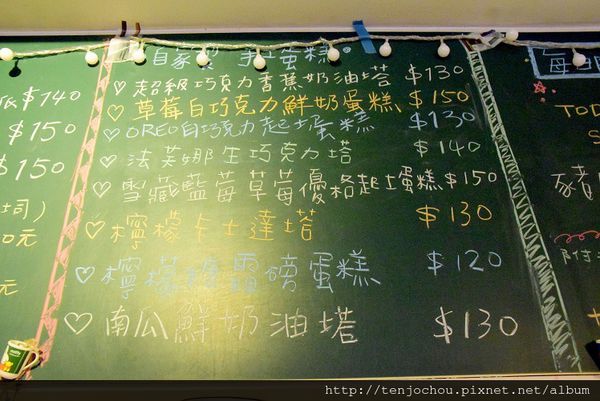 自家製 手工蛋糕。
♡超級巧克力香蕉奶油塔 $130
♡草莓白巧克力鮮奶蛋糕 $150
♡OREO白巧克力起士蛋糕 $130
♡法芙娜生巧克力塔 $140
♡雪藏藍莓草莓優格起士蛋糕 $150
♡檸檬卡士達塔 $130
♡檸檬糖霜磅蛋糕 $120
♡南瓜鮮奶油塔 $130
$140
$150
$150
司)
0元
元
每日
TOD
http://tenjochou.pixnet.net/album